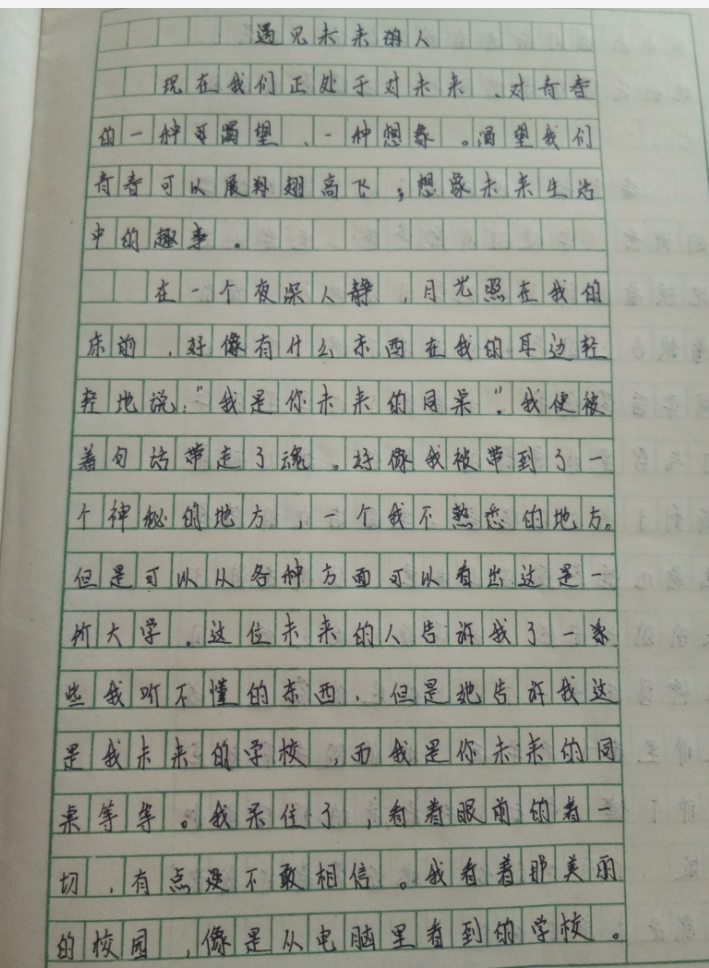 遇见未来的人
现在我们正处于对未来、对青春
的一种渴望、一种想象。渴望我们
青春可以展翅高飞，想象未来生活
中的趣事。
在一个夜深人静，月光照在我的
床前，好像有什么东西在我的耳边轻
轻地说：“我是你未来的同桌”。我便被
着句话带走了魂。好像我被带到了一
个神秘的地方，一个我不熟悉的地方。
但是可以从各种方面可以看出这是一
所大学。这位未来的人告诉我了一
些我听不懂的东西，但是她告诉我这
是我未来的学校，而我是你未来的同
桌等等。我呆住了，看着眼前的着一
切，有点没不敢相信。我看着那美丽
的校园，像是从电脑里看到的学校。